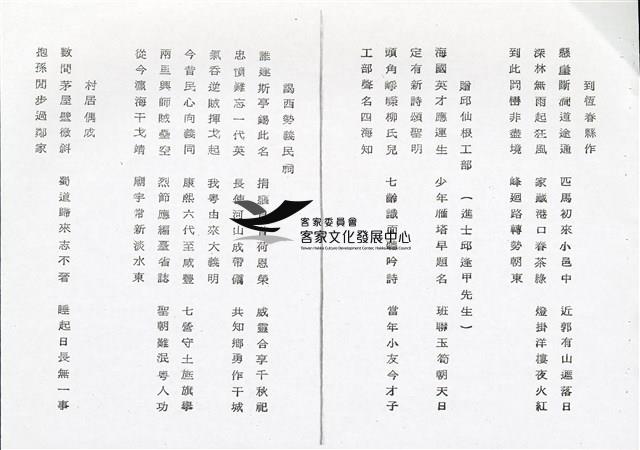 到恆春縣作
懸崖斷澗道途通　匹馬初來小邑中　近郭有山遲落日
深林無雨起狂風　家藏港口春茶綠　燈掛洋樓夜火紅
到此問疆非盡境　峰迴路轉勢朝東
贈邱仙根工部（進士邱逢甲先生）
海國英才應運生　少年雁塔早題名　班聯玉筍朝天日
定有新詩頌聖明
頭角崢嶸柳氏兒　七齡識面　吟詩　當年小友今才子
工部聲名四海知
謁西勢義民祠
誰建斯亭錫此名　捐軀　荷恩榮　威靈合享千秋祀
忠憤難忘一代英　長使河山成帶礪　共知鄉勇作干城
氣吞逆賊揮戈起　我粵由來大義明
今昔民心向義同　康熙六代至咸豐　七營守土旌旗舉
兩里興師賊壘空　烈節應編臺省誌　聖朝難泯粵人功
從今瀛海干戈靖　廟宇常新淡水東
村居偶成
數間茅屋壁微斜　蜀道歸來志不奢　睡起日長無一事
抱孫閒步過鄰家
客家委員會
客家文化發展中心
Taiwan Hakka Culture Development Center, Hakka Affairs Council